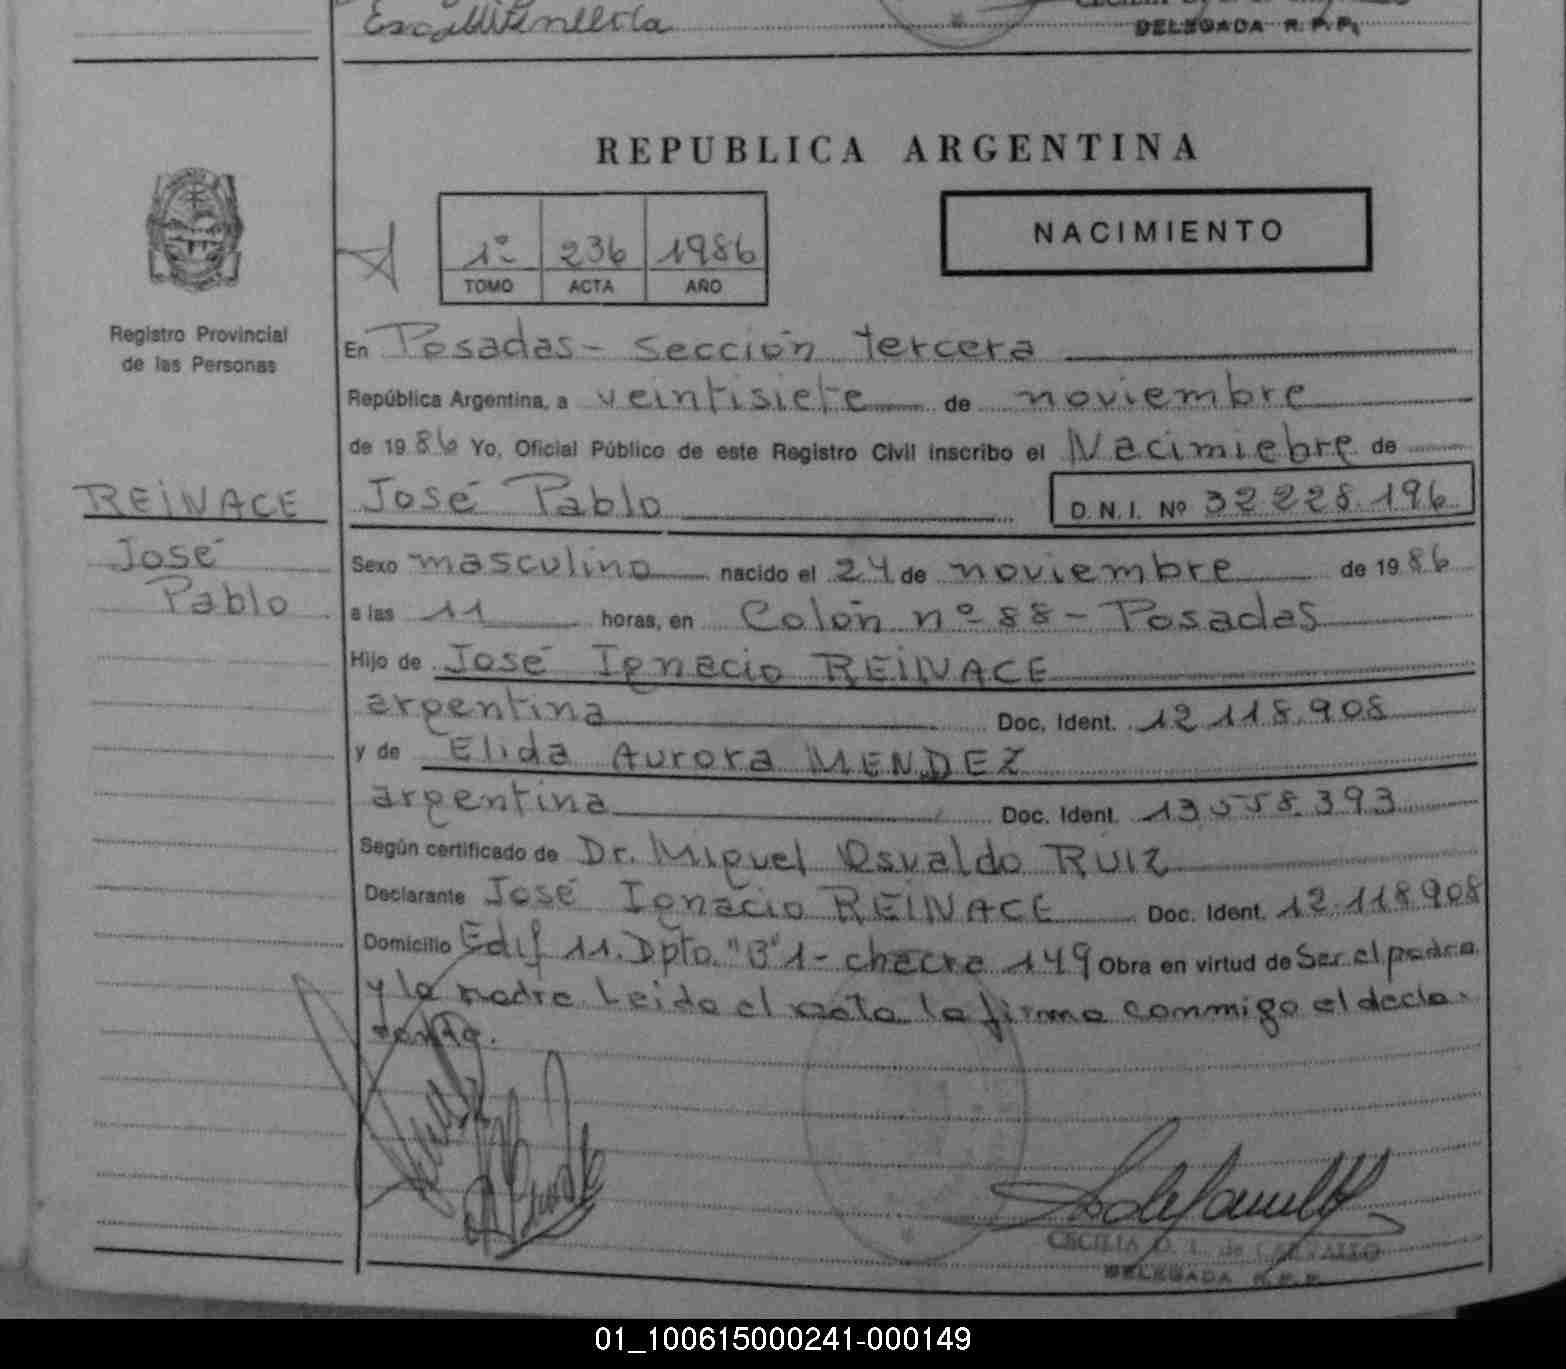 DELEGADA R. P. P.
REPUBLICA ARGENTINA
NACIMIENTO
1º 236 1986
TOMO ACTA AÑO
Registro Provincial
de las Personas
En Posadas - Sección tercera
República Argentina, a veintisiete de noviembre
de 1986 Yo, Oficial Público de este Registro Civil inscribo el Nacimiebre de
REINACE
José
Pablo
José Pablo D. N. I. Nº 32228.196
Sexo masculino nacido el 24 de noviembre de 1986
a las 11 horas, en Colón nº 88 - Posadas
Hijo de José Ignacio REINACE
argentina Doc. Ident. 12.118.908
y de Elida Aurora MENDEZ
argentina Doc. Ident. 13.558.393
Según certificado de Dr. Miguel Osvaldo RUIZ
Declarante José Ignacio REINACE Doc. Ident. 12.118.908
Domicilio Edif 11. Dpto. "B" 1 - chacra 149 Obra en virtud de Ser el padre
y la madre Leida el acta la firma conmigo el decla-
rante.
CECILIA D. L. de CARVALLO
DELEGADA R. P. P.
01_100615000241-000149